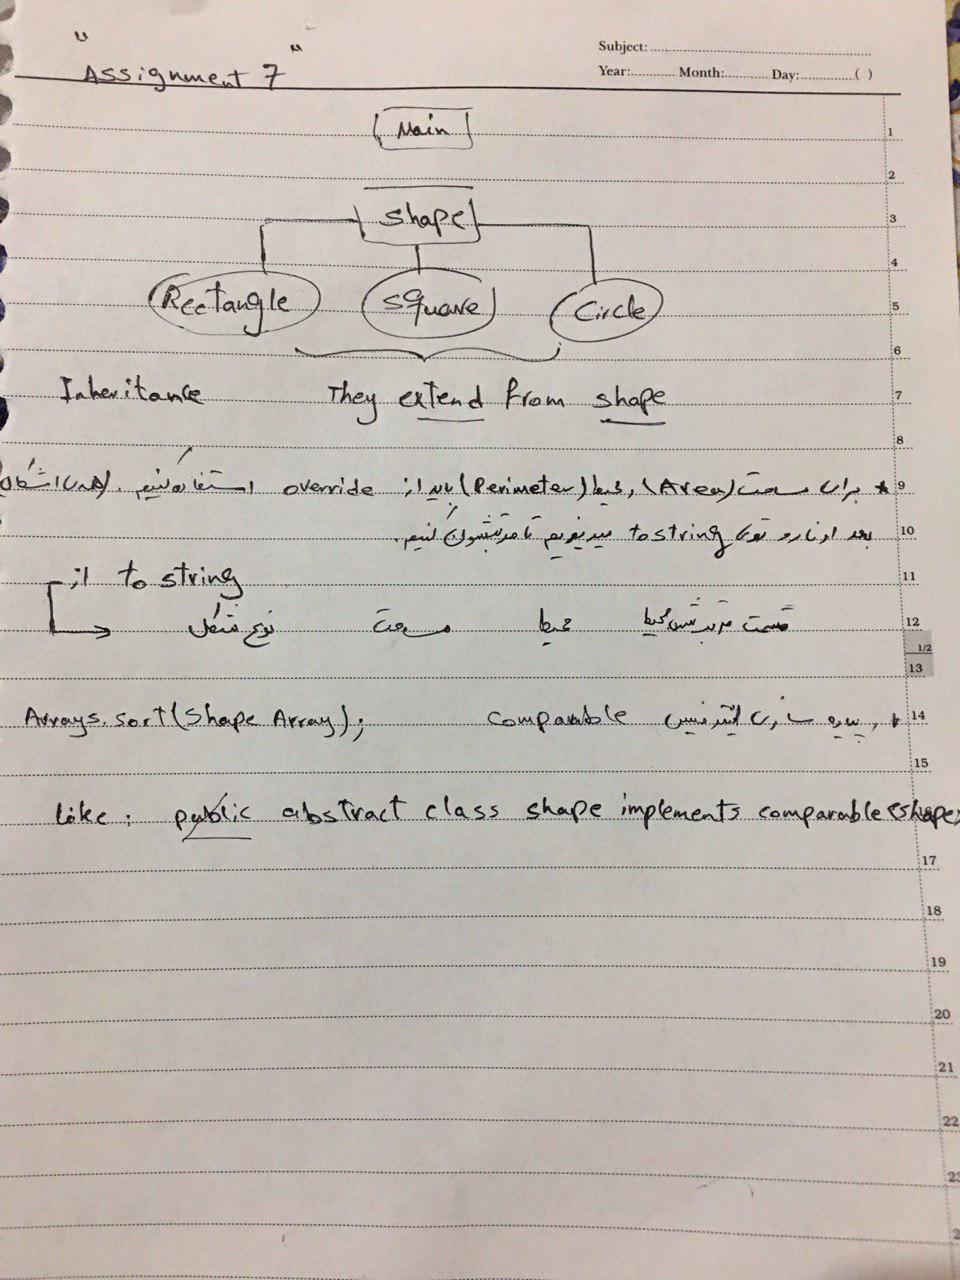 "Assignment 7"
Subject:
Year: Month: Day: ( )
Main
shape
Rectangle square Circle
Inheritance They extend from shape
* برای مساحت (Area) و محیط (Perimeter) باید از override استفاده کنیم.
بعد اونارو توی to string میریزیم تا مرتبشون کنیم.
از to string
نوع شکل مساحت محیط قسمت
Arrays.sort(Shape Array); comparable پیاده سازی اینترفیس
Like: public abstract class shape implements comparable<shape>
1
2
3
4
5
6
7
8
9
10
11
12
1/2
13
14
15
17
18
19
20
21
22